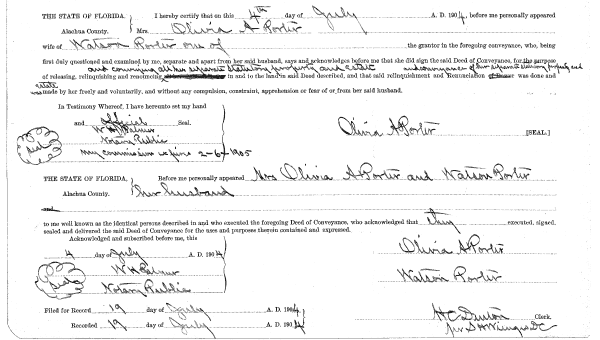 THE STATE OF FLORIDA. I hereby certify that on this 4th day of July A. D. 1904, before me personally appeared
Alachua County. Mrs. Olivia A Porter
wife of Watson Porter one of the grantor in the foregoing conveyance, who, being
first duly questioned and examined by me, separate and apart from her said husband, says and acknowledges before me that she did sign the said Deed of Conveyance, for the purpose
and conveying all her separate statutory property and estate and conveyance of her separate statutory property and
of releasing, relinquishing and renouncing in and to the land in said Deed described, and that said relinquishment and Renunciation was done and
estate
made by her freely and voluntarily, and without any compulsion, constraint, apprehension or fear of or from her said husband.
In Testimony Whereof, I have hereunto set my hand
and official Seal. Olivia A Porter [SEAL.]
W H Palmer
Notary Public
my commission expires 2-6-1905
THE STATE OF FLORIDA. Before me personally appeared Mrs Olivia A Porter and Watson Porter
Alachua County. her husband
and
to me well known as the identical persons described in and who executed the foregoing Deed of Conveyance, who acknowledged that they executed, signed,
sealed and delivered the said Deed of Conveyance for the uses and purposes therein contained and expressed.
Acknowledged and subscribed before me, this
4 day of July A. D. 1904 Olivia A Porter
W H Palmer Watson Porter
Notary Public
Filed for Record 19 day of July A. D. 1904 H C Denton Clerk.
Recorded 19 day of July A. D. 1904 per S H Wienges DC